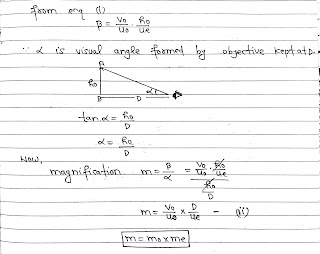 from eq (i)
β = Vo/uo · ho/ue
∵ α is visual angle formed by objective kept at D.
A
ho
α
B D
tan α = ho/D
α = ho/D
Now,
magnification m = β/α = (Vo/uo · ho/ue)/(ho/D)
m = Vo/uo × D/ue - (ii)
m = mo x me